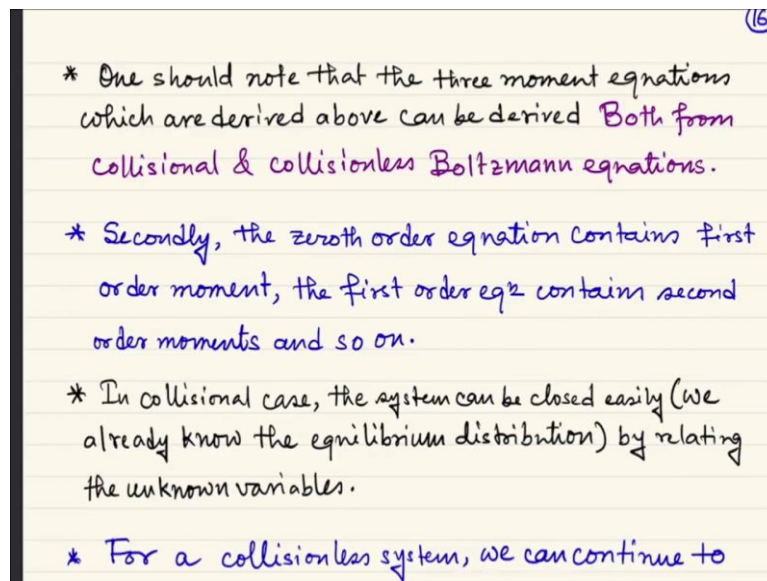 16
* One should note that the three moment equations
which are derived above can be derived Both from
collisional & collisionless Boltzmann equations.
* Secondly, the zeroth order equation contains first
order moment, the first order eqn contains second
order moments and so on.
* In collisional case, the system can be closed easily (we
already know the equilibrium distribution) by relating
the unknown variables.
* For a collisionless system, we can continue to